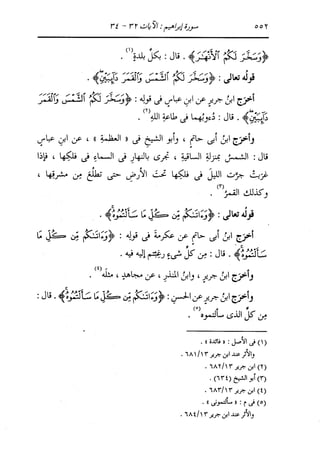 ٥٥٢ سورة إبراهيم : الآيات ٣٢ - ٣٤
﴿وَسَخَّرَ لَكُمُ الْأَنْهَارَ﴾ . قال : بكلِّ بلدةٍ(١) .
قولُه تعالى : ﴿وَسَخَّرَ لَكُمُ الشَّمْسَ وَالْقَمَرَ دَائِبَيْنِ﴾ .
أخرَج ابنُ جريرٍ عن ابنِ عباسٍ فى قولِه : ﴿وَسَخَّرَ لَكُمُ الشَّمْسَ وَالْقَمَرَ
دَائِبَيْنِ﴾ . قال : دُءوبُهما فى طاعةِ اللهِ(٢) .
وأخرَج ابنُ أبى حاتمٍ ، وأبو الشيخِ فى « العظمةِ » ، عن ابنِ عباسٍ
قال : الشمسُ بمنزلةِ الساقيةِ ، تَجرى بالنهارِ فى السماءِ فى فلكِها ، فإذا
غرَبت جرَت الليلَ فى فلكِها تحتَ الأرضِ حتى تطلُعَ مِن مشرقِها ،
وكذلك القمرُ(٣) .
قولُه تعالى : ﴿وَءَاتَاكُم مِّن كُلِّ مَا سَأَلْتُمُوهُ﴾ .
أخرَج ابنُ أبى حاتمٍ عن عكرمةَ فى قولِه : ﴿وَءَاتَاكُم مِّن كُلِّ مَا
سَأَلْتُمُوهُ﴾ . قال : مِن كلِّ شىءٍ رغِبتم إليه فيه .
وأخرَج ابنُ جريرٍ ، وابنُ المنذرِ ، عن مجاهدٍ ، مثلَه(٤) .
وأخرَج ابنُ جريرٍ عن الحسنِ : ﴿وَءَاتَاكُم مِّن كُلِّ مَا سَأَلْتُمُوهُ﴾ . قال :
مِن كلِّ الذى سأَلتموه(٥) .
(١) فى الأصل : « فائدة » .
والأثر عند ابن جرير ١٣/ ٦٨١ .
(٢) ابن جرير ١٣/ ٦٨٢ .
(٣) أبو الشيخ (٦٣٤) .
(٤) ابن جرير ١٣/ ٦٨٣ .
(٥) فى م : « سألتمونى » .
والأثر عند ابن جرير ١٣/ ٦٨٤ .